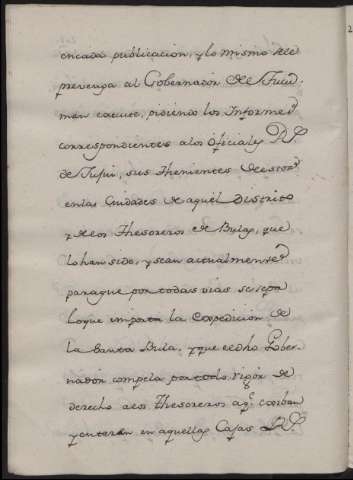 en cada publicacion, y lo mismo se le
prevenga al Governador de Tucu-
man execute, pidiendo los Informes
correspondientes a los Oficiales Rs.
de Jujui, sus Thenientes de estos
en las Ciudades de aquel Districto
y de los Thesoreros de Bulas, que
lo han sido, y sean actualmente
para que por todas vias se sepa
lo que importa la Expedicion de
la Santa Bula, y que el dho Gober-
nador compela por todo rigor de
derecho a los Thesoreros a q.e exiban
y enteren en aquellas Cajas Rs.